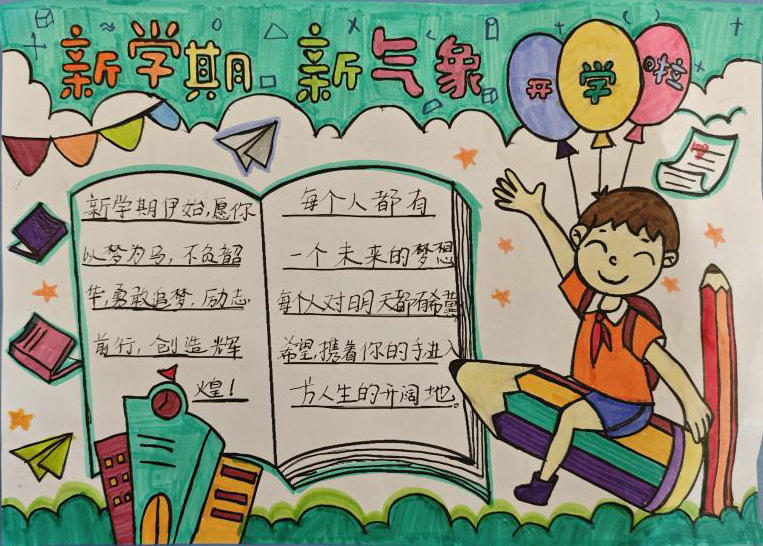 新学期 新气象
开学啦
新学期伊始,愿你
以梦为马,不负韶
华,勇敢追梦,励志
前行,创造辉
煌!
每个人都有
一个未来的梦想
每个人对明天都有希
希望,携着你的手进入
方人生的开阔地。